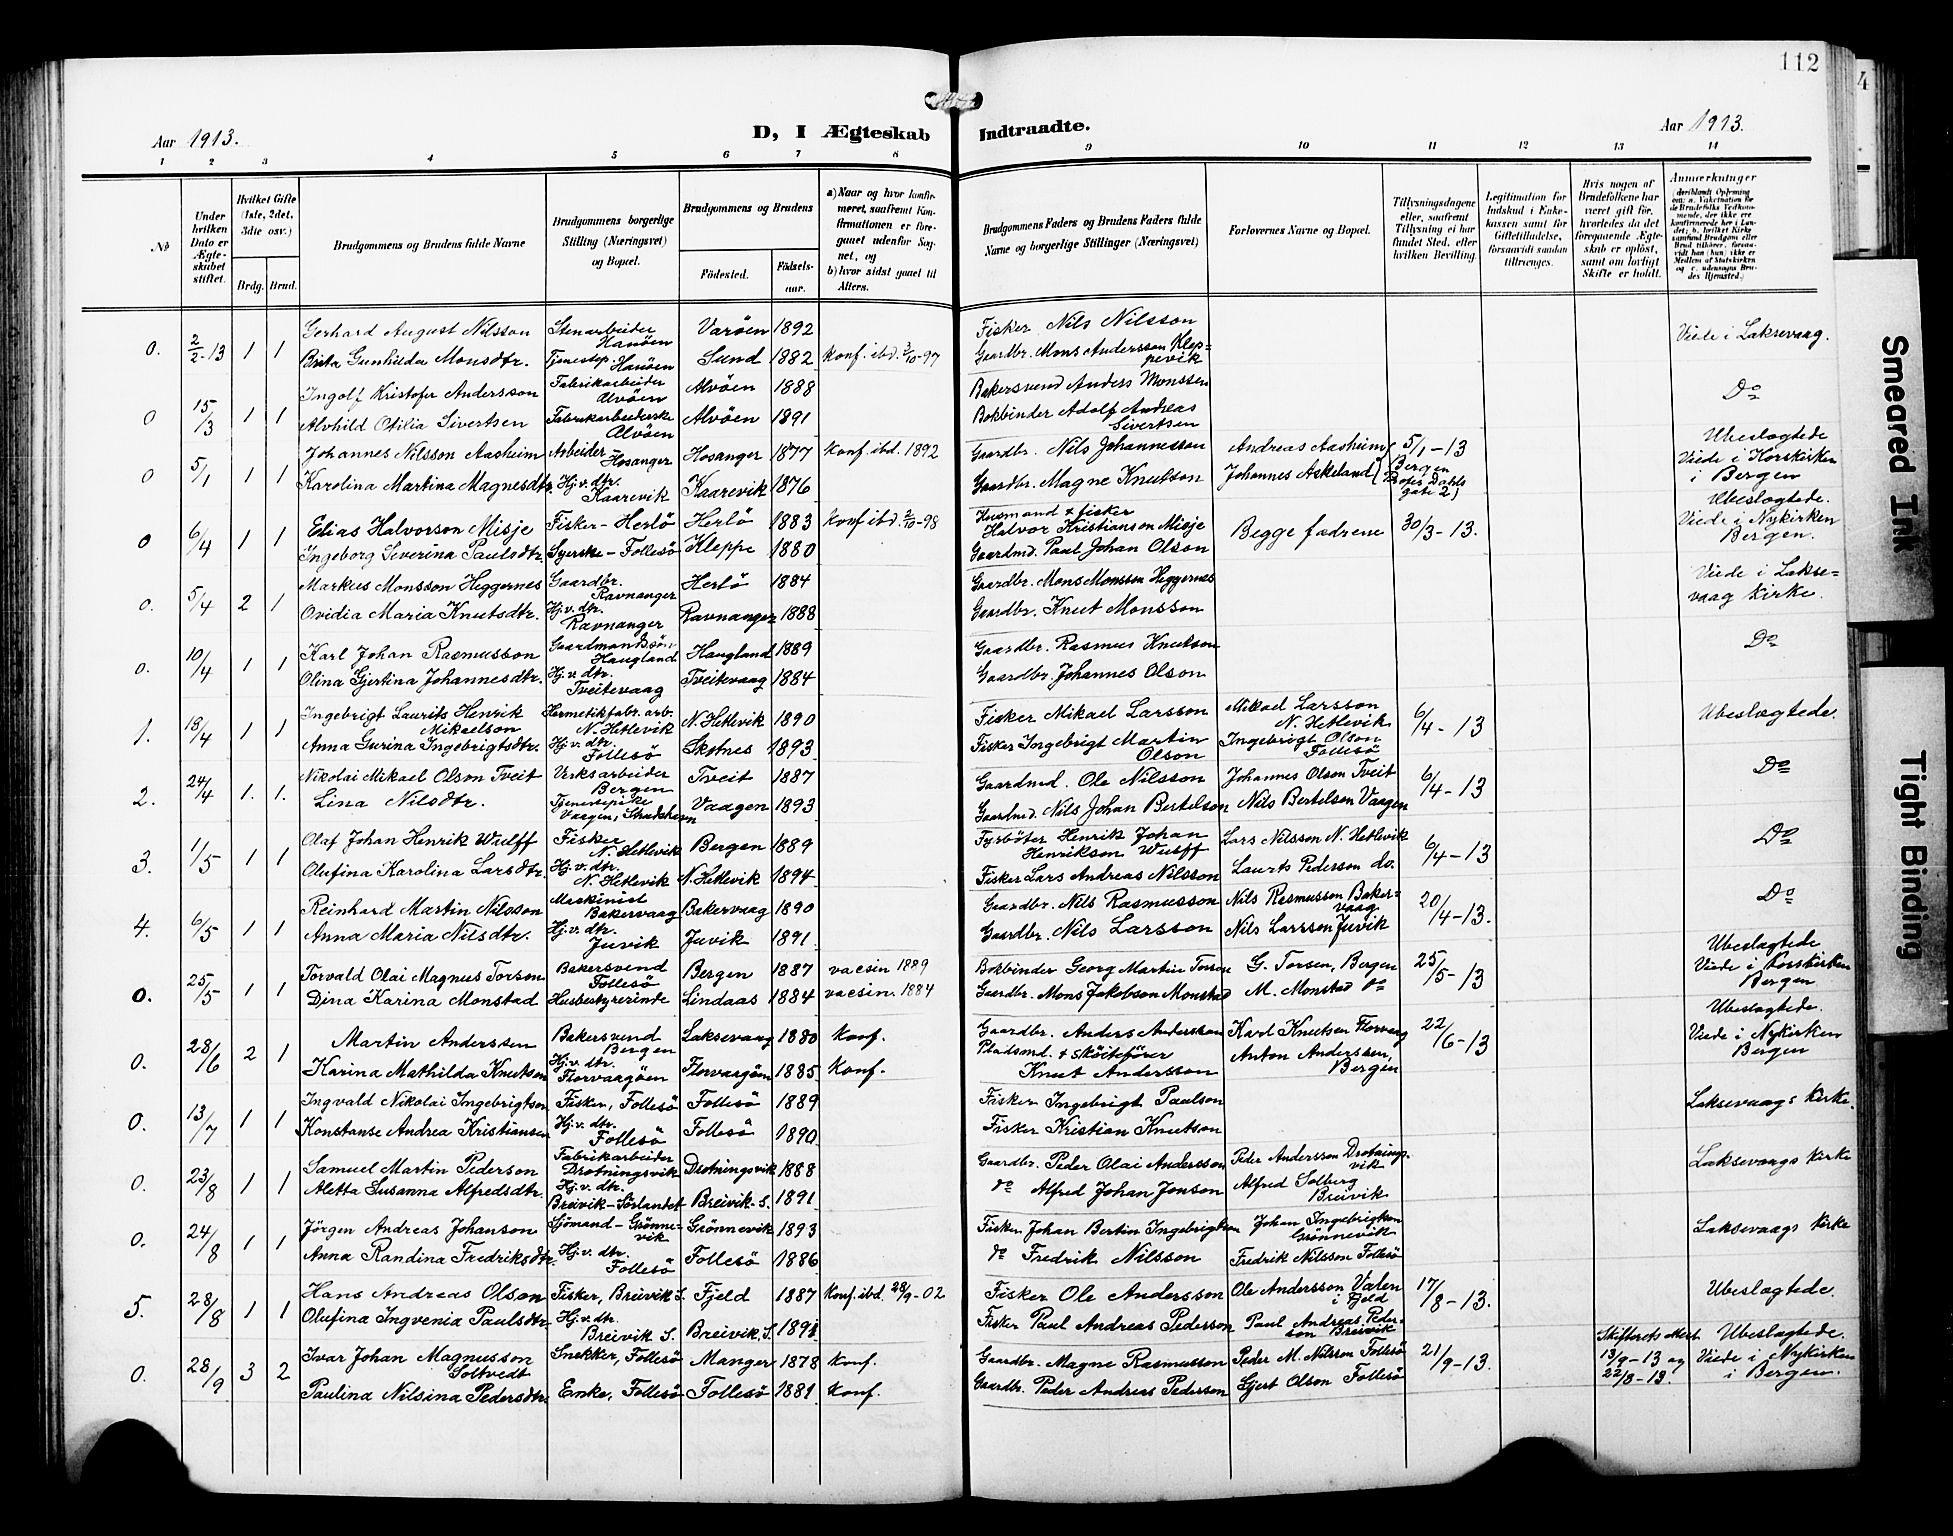 112
4
Aar 1913.
D, I Ægteskab
Indtraadte.
Aar 1913.
1 2 3 4 5 6 7 8 9 10 11 12 13 14
No
Under hvilken Dato er Ægteskabet stiftet.
Hvilket Gifte (1ste, 2det, 3die osv.)
Brdg. Brud.
Brudgommens og Brudens fulde Navne
Brudgommens borgerlige Stilling (Næringsvei) og Bopæl.
Brudgommens og Brudens
Födested.
Födselsaar.
a) Naar og hvor konfirmeret, saafremt Konfirmationen er foregaaet udenfor Sognet, og
b) hvor sidst gaaet til Alters.
Brudgommens Faders og Brudens Faders fulde Navne og borgerlige Stillinger (Næringsvei)
Forlovernes Navne og Bopæl.
Tillysningsdagene eller, saafremt Tillysning ei har fundet Sted, efter hvilken Bevilling.
Legitimation for Indskud i Enkekassen samt for Giftetilladelse, forsaavidt saadan tiltrænges.
Hvis nogen af Brudefolkene har været gift för, hvorledes da det foregaaende Ægteskab er oplöst, samt om lovligt Skifte er holdt.
Anmærkninger
(deriblandt Oplysning om: a. Vaksination for de Brudefolks Vedkommende, der ikke ere konfirmerede her i Landet; b. hvilket Kirkesamfund Brudgom eller Brud tilhörer, forsaavidt han (hun) ikke er Medlem af Statskirken og c. udensogns Brudes Hjemsted.)
0. 2/2-13 1 1 Gerhard August Nilsson Stenarbeider Hanöen Varöen 1892 Fisker Nils Nilsson Viede i Laksevaag.
Brita Gunhilda Monsdtr. Tjenestep. Hanöen Sund 1882 Konf. ibd. 3/10-97 Gaardbr. Mons Andersson Kleppevik
0 15/3 1 1 Ingolf Kristofer Andersson Fabrikarbeider Alvöen Alvöen 1888 Bakersvend Anders Monssen Do
Alvhild Otilia Sivertsen Fabrikarbeiderske Alvöen Alvöen 1891 Bokbinder Adolf Andreas Sivertsen
0 5/1 1 1 Johannes Nilsson Aasheim Arbeider Hosanger Hosanger 1877 Konf. ibd. 1892 Gaardbr. Nils Johannesson Andreas Aasheim 5/1-13 Ubeslægtede Viede i Korskirken i Bergen
Karolina Martina Magnesdtr. Hj. v. dtr. Kaarevik Kaarevik 1876 Gaardbr. Magne Knutson Johannes Askeland (Bergen Profes Dahls gate 2)
0 6/4 1 1 Elias Halvorson Misje Fisker - Herlö Herlö 1883 Konf. ibd. 2/10-98 Husmand & fisker Halvor Kristianson Misje Begge fædrene 30/3-13. Ubeslægtede. Viede i Nykirken Bergen.
Ingeborg Severina Paulsdtr. Syerske - Follesö Kleppe 1880 Gaardmd. Paul Johan Olson
0. 5/4 2 1 Markus Monsson Heggernes Gaardbr. Ravnanger Herlö 1884 Gaardbr. Mons Monssen Heggernes Viede i Laksevaag kirke.
Ovidia Maria Knutsdtr. Hj. v. dtr. Ravnanger Ravnanger 1888 Gaardbr. Knut Monsson
0. 10/4 1 1 Karl Johan Rasmusson Gaardmandssön Haugland Haugland 1889 Gaardbr. Rasmus Knutson Do
Olina Gjertina Johannesdtr. Hj. v. dtr. Tveitevaag Tveitevaag 1884 Gaardbr. Johannes Olson
1. 13/4 1 1 Ingebrigt Laurits Henrik Mikaelson Hermetikfabr. arb. N. Hetlevik N. Hetlevik 1890 Fisker Mikael Larsson Mikael Larsson N. Hetlevik 6/4-13 Ubeslægtede.
Anna Gurina Ingebrigtsdtr. Hj. v. dtr. Follesö Skotnes 1893 Fisker Ingebrigt Martin Olson Ingebrigt Olson Follesö
2. 24/4 1. 1. Nikolai Mikael Olson Tveit Verksarbeider Bergen Tveit 1887 Gaardmd. Ole Nilsson Johannes Olson Tveit 6/4-13 Do
Lina Nilsdtr. Tjenestepike Vaagen, Strudshavn Vaagen 1893 Gaardmd. Nils Johan Bertelson Nils Bertelson Vaagen
3. 1/5 1 1 Olaf Johan Henrik Wulff Fisker N. Hetlevik Bergen 1889 Fyrböter Henrik Johan Henrikson Wulff Lars Nilsson N. Hetlevik 6/4-13 Do
Olufina Karolina Larsdtr. Hj. v. dtr. N. Hetlevik N. Hetlevik 1894 Fisker Lars Andreas Nilsson Laurts Pederson do.
4. 6/5 1 1 Reinhard Martin Nilsson Maskinist Bakervaag Bakervaag 1890 Gaardbr. Nils Rasmusson Nils Rasmusson Bakervaag 20/4-13. Do
Anna Maria Nilsdtr. Hj. v. dtr. Juvik Juvik 1891 Gaardbr. Nils Larsson Nils Larsson Juvik
0. 25/5 1 1 Torvald Olai Magnus Torson Bakersvend Follesö Bergen 1887 vacsin 1889 Bokbinder Georg Martin Torsen G. Torsen, Bergen 25/5-13 Ubeslægtede Viede i Korskirken Bergen
Dina Karina Monstad Husbestyrerinde Lindaas 1884 vacsin. 1884 Gaardbr. Mons Jakobson Monstad M. Monstad do
0. 28/6 2 1 Martin Anderssen Bakersvend Bergen Laksevaag 1880 Konf. Gaardbr. Anders Andersson Karl Knutsen Florvaag 22/6-13 Ubeslægtede. Viede i Nykirken Bergen
Karina Mathilda Knutson Hj. v. dtr. Florvaagöen Florvaagöen 1885 Konf. Pladsmd. & sköitefører Knut Andersson Anton Anderssen, Bergen
0. 13/7 1 1 Ingvald Nikolai Ingebrigtson Fisker, Follesö Follesö 1889 Fisker Ingebrigt Paulson Laksevaags Kirke.
Konstanse Andrea Kristiansen Hj. v. dtr. Follesö Follesö 1890 Fisker Kristian Knutson
0. 23/8 1 1 Samuel Martin Pederson Fabrikarbeider Drotningsvik Drotningsvik 1888 Gaardbr. Peder Olai Andersson Peder Andersson Drotningsvik Laksevaags Kirke
Aletta Susanna Alfredsdtr. Hj. v. dtr. Breivik - Sörlandet Breivik. S. 1891 do Alfred Johan Jonson Alfred Solberg Breivik
0. 24/8 1 1 Jörgen Andreas Johanson Sjömand - Grönnevik Grönnevik 1893 Fisker Johan Bertin Ingebrigtson Johan Ingebrigtson Grönnevik Laksevaags Kirke
Anna Randina Fredriksdtr. Hj. v. dtr. Follesö Follesö 1886 do Fredrik Nilsson Fredrik Nilsson Follesö
5. 28/8 1 1 Hans Andreas Olson Fisker, Breivik S. Fjeld 1887 Konf. ibd. 28/9-02 Fisker Ole Andersson Ole Andersson Valen i Fjeld 17/8-13. Ubeslægtede.
Olufina Ingvenia Paulsdtr. Hj. v. dtr. Breivik S. Breivik, S. 1891 Fisker Paul Andreas Pederson Paul Andreas Pederson Breivik
0. 28/9 3 2 Ivar Johan Magnusson Soltvedt Snekker, Follesö Manger 1878 Konf. Gaardbr. Magne Rasmusson Peder M. Nilsson Follesö 21/9-13. Skifterets Attest 13/9-13 og 22/8-13. Ubeslægtede. Viede i Nykirken i Bergen.
Paulina Nilsina Pedersdtr. Enke, Follesö Follesö 1881 Konf. Gaardbr. Peder Andreas Pederson Gjert Olson Follesö
Smeared Ink
Tight Binding